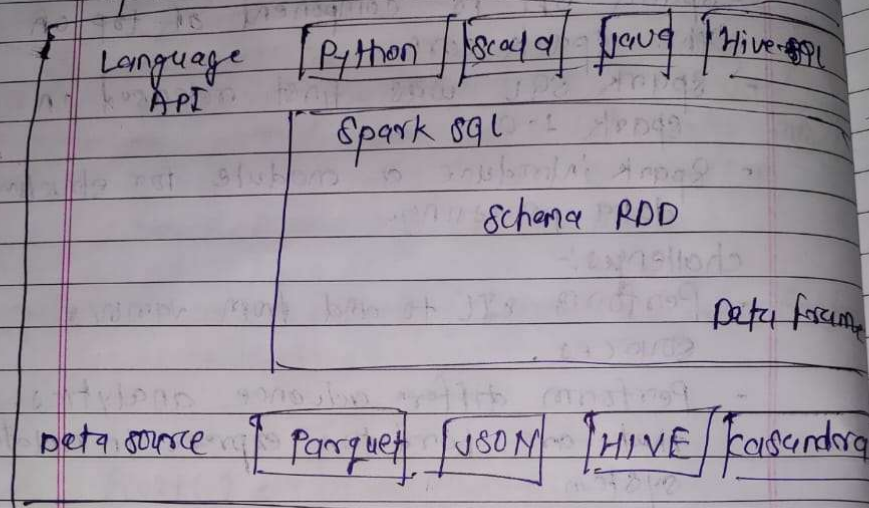 Language Python Scala Java Hive SQL
API
Spark SQL
Schema RDD
Data frame
Data source Parquet JSON HIVE Casandra